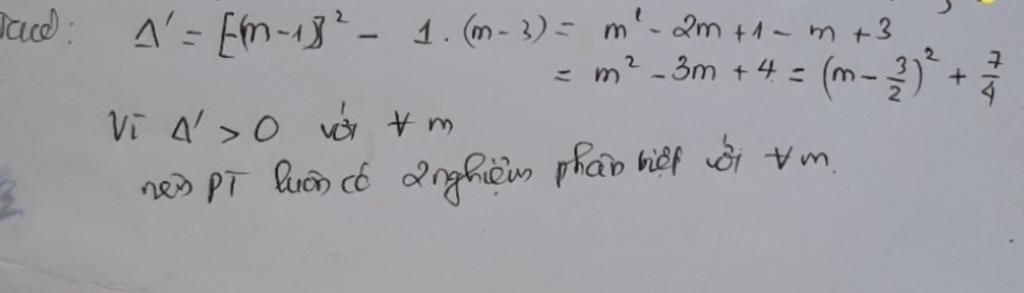 Ta có: Δ' = [-(m-1)]² - 1. (m-3) = m² - 2m + 1 - m + 3
= m² - 3m + 4 = (m - 3/2)² + 7/4
Vì Δ' > 0 với ∀ m
nên PT luôn có 2 nghiệm phân biệt với ∀ m.